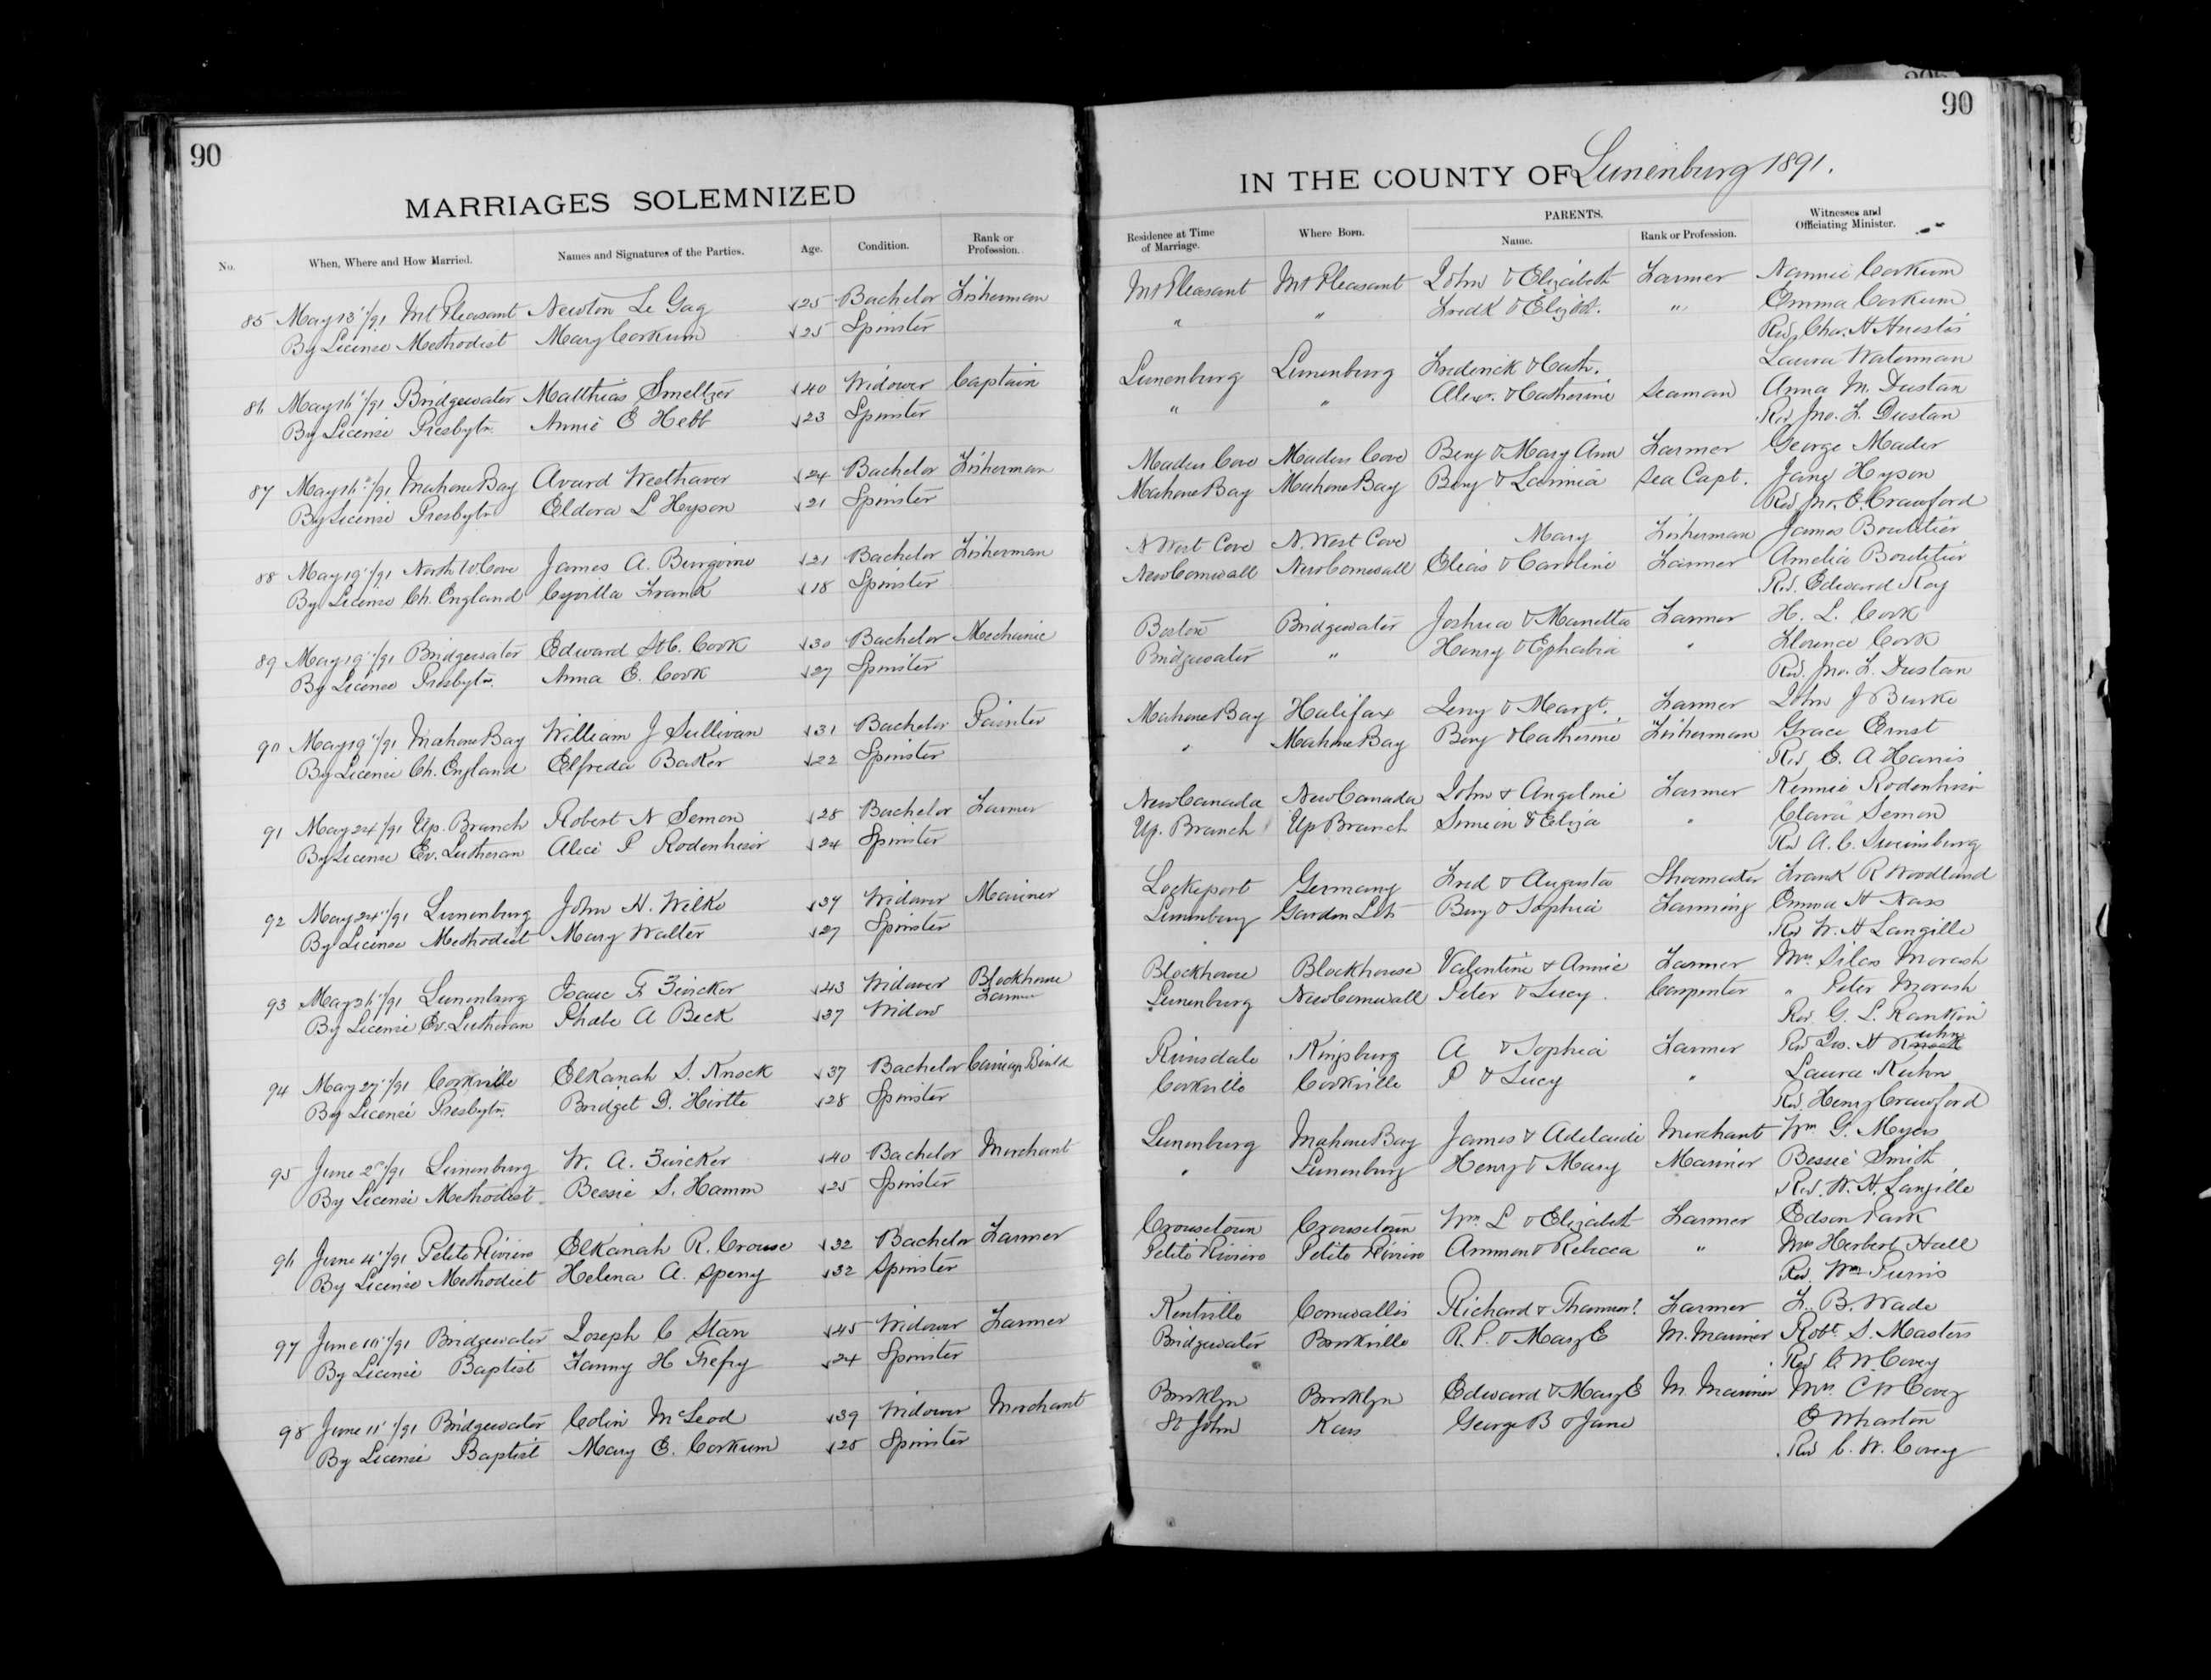 90
MARRIAGES SOLEMNIZED
No. When, Where and How Married. Names and Signatures of the Parties. Age. Condition. Rank or Profession.
85 May 13"/91 Mt Pleasant Newton Le Gag 25 Bachelor Fisherman
By License Methodist Mary Corkum 25 Spinster
86 May 16"/91 Bridgewater Matthias Smeltzer 40 Widower Captain
By License Presbytn. Annie E Hebb 23 Spinster
87 May 16"/91 Mahone Bay Avard Weethaver 24 Bachelor Fisherman
By License Presbytn Eldora L Hyson 21 Spinster
88 May 19"/91 North W Cove James A. Burgoine 21 Bachelor Fisherman
By License Ch. England Cyvilla Frank 18 Spinster
89 May 19"/91 Bridgewater Edward St C. Cook 30 Bachelor Mechanic
By License Presbytn. Anna E. Cook 27 Spinster
90 May 19"/91 Mahone Bay William J Sullivan 31 Bachelor Painter
By License Ch. England Elfreda Baker 22 Spinster
91 May 24"/91 Up. Branch Robert N Semon 28 Bachelor Farmer
By License Ev. Lutheran Alice P Rodenhiser 24 Spinster
92 May 24"/91 Lunenburg John H. Wilke 37 Widower Mariner
By License Methodist Mary Walter 27 Spinster
93 May 26"/91 Lunenburg Isaac F Zwicker 43 Widower Blockhouse Farmer
By License Ev. Lutheran Phebe A Beck 37 Widow
94 May 27"/91 Corkville Elkanah S. Knock 37 Bachelor Carriage Build
By License Presbytn. Bridget D. Hirtle 28 Spinster
95 June 2nd/91 Lunenburg W. A. Zwicker 40 Bachelor Merchant
By License Methodist Bessie S. Hamm 25 Spinster
96 June 4"/91 Petite Riviere Elkanah R. Crouse 32 Bachelor Farmer
By License Methodist Helena A. Sperry 32 Spinster
97 June 10"/91 Bridgewater Joseph C Starr 45 Widower Farmer
By License Baptist Fanny H Trefry 24 Spinster
98 June 11"/91 Bridgewater Colin McLeod 39 Widower Merchant
By License Baptist Mary E. Corkum 25 Spinster
90
IN THE COUNTY OF Lunenburg 1891.
Residence at Time of Marriage. Where Born. PARENTS. Name. Rank or Profession. Witnesses and Officiating Minister.
Mt Pleasant Mt Pleasant John & Elizabeth Farmer Nannie Corkum
" " Fredk & Elizbt. " Emma Corkum
Rev. Chas. H Huestis
Laura Waterman
Lunenburg Lunenburg Frederick & Cath.
" " Alexr. & Catherine Seaman Anna M. Dustan
Rev. Jno. L. Dustan
Maders Cove Maders Cove Benj & Mary Ann Farmer George Mader
Mahone Bay Mahone Bay Benj & Lavinia Sea Capt. Jane Hyson
Rev Jno. E. Crawford
N West Cove N. West Cove Mary Fisherman James Boutilier
New Cornwall New Cornwall Elias & Caroline Farmer Amelia Boutilier
Rev. Edward Roy
Boston Bridgewater Joshua & Manetta Farmer H. L. Cook
Bridgewater " Henry & Ephabia " Florence Cook
Rev. Jno. L. Dustan
Mahone Bay Halifax Jerry & Margt. Farmer John J Burke
" Mahone Bay Benj & Catherine Fisherman Grace Ernst
Rev E. A Harris
New Canada New Canada John & Angeline Farmer Rennie Rodenhiser
Up. Branch Up Branch Simeon & Eliza " Clara Semon
Rev A. C. Swinsburg
Lockeport Germany Fred & Augusta Shoemaker Frank R Woodland
Lunenburg Garden Lots Benj & Sophia Farming Emma H Nass
Rev W. H Langille
Blockhouse Blockhouse Valentine & Annie Farmer Mrs. Silas Morash
Lunenburg New Cornwall Peter & Lucy. Carpenter " Peter Morash
Rev. G. L. Rankin
Kinsburg A & Sophia Farmer Rev Jas. H Kuhn
Corkville Corkville P & Lucy " Laura Kuhn
Rev. Henry Crawford
Lunenburg Mahone Bay James & Adelaide Merchant Wm. G. Myers
" Lunenburg Henry & Mary Mariner Bessie Smith
Rev. W. H. Langille
Crousetown Crousetown Wm. L & Elizabeth Farmer Edson Park
Petite Riviere Petite Riviere Ammon & Rebecca " Mrs Herbert Hall
Rev. Wm Purvis
Kentville Cornwallis Richard & Thamer? Farmer F. B. Wade
Bridgewater Brookville R. P. & Mary E M. Mariner Robt. S. Masters
Rev C. W. Covey
Brooklyn Brooklyn Edward & Mary E M. Mariner Mrs. C W Covey
St John George B & Jane E Wharton
Rev C. W. Covey